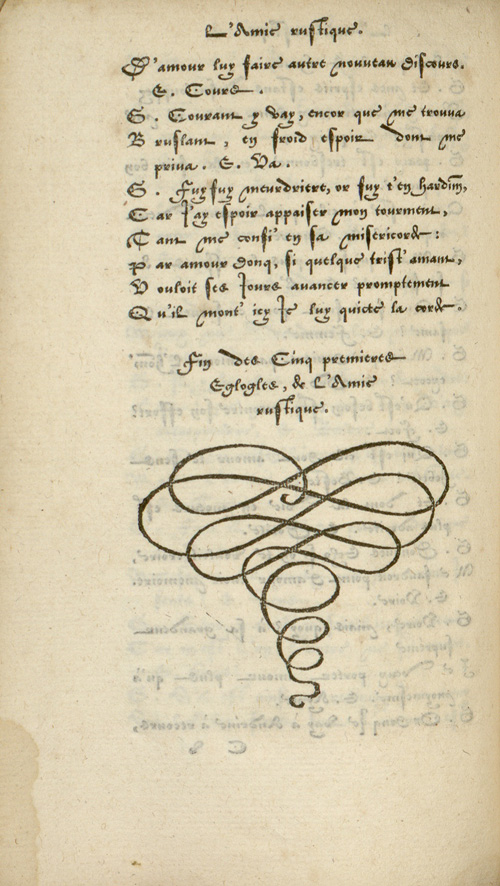 L'Amie rustique.
D'amour luy faire autre nouueau discours.
E. Cours.
G. Courant y vay, encor que me trouua
Bruslant, en froid espoir dont me
priua. E. Va.
G. Fuy fuy meurdriere, or fuy t'en hardim̃,
Car J'ay espoir appaiser mon tourment,
Tant me confi' en sa misericorde:
Par amour donq, si quelque trist' amant,
Vouloit ses Jours auancer promptement
Qu'il mont' icy Je luy quicte la corde.
Fin des Cinq premieres
Eglogles, de L'Amie
rustique.